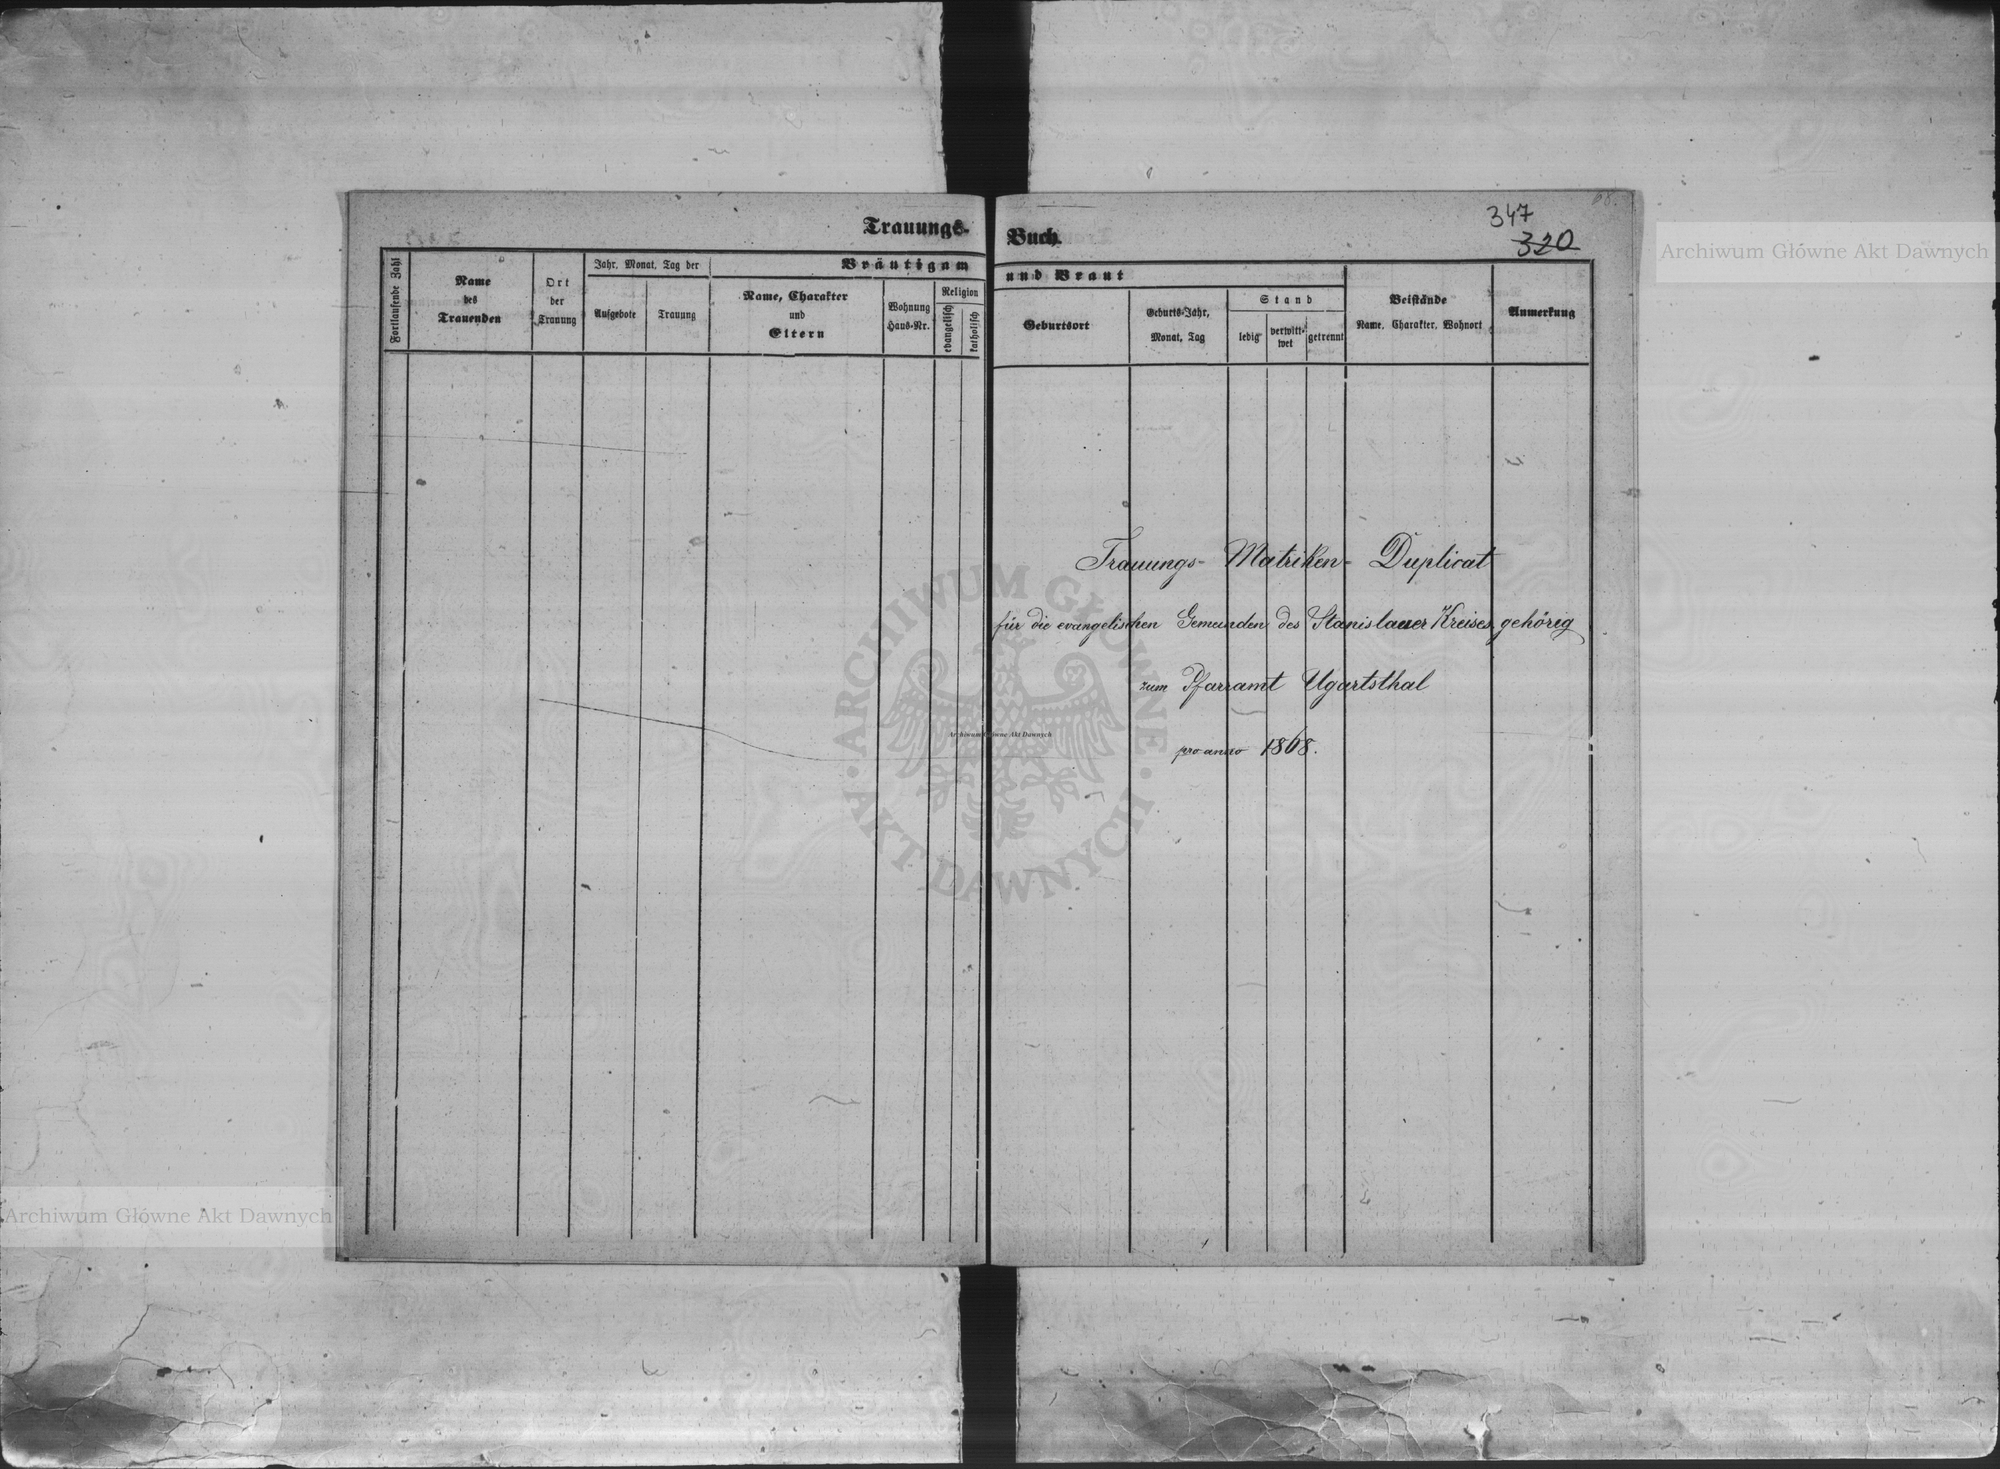 347
320
68.
Trauungs-Buch.
Fortlaufende Zahl
Name
des
Trauenden
Ort
der
Trauung
Jahr, Monat, Tag der
Aufgebote
Trauung
Bräutigam und Braut
Name, Charakter
und
Eltern
Wohnung
Haus-Nr.
Religion
evangelisch
katholisch
Geburtsort
Geburts-Jahr,
Monat, Tag
Stand
ledig
verwitt-
wet
getrennt
Beistände
Name, Charakter, Wohnort
Anmerkung
Trauungs- Matriken- Duplicat
für die evangelischen Gemeinden des Stanislauer Kreises, gehörig
zum Pfarramt Ugartsthal
pro anno 1868.
Archiwum Główne Akt Dawnych
ARCHIWUM GŁÓWNE
AKT DAWNYCH
Archiwum Główne Akt Dawnych
Archiwum Główne Akt Dawnych